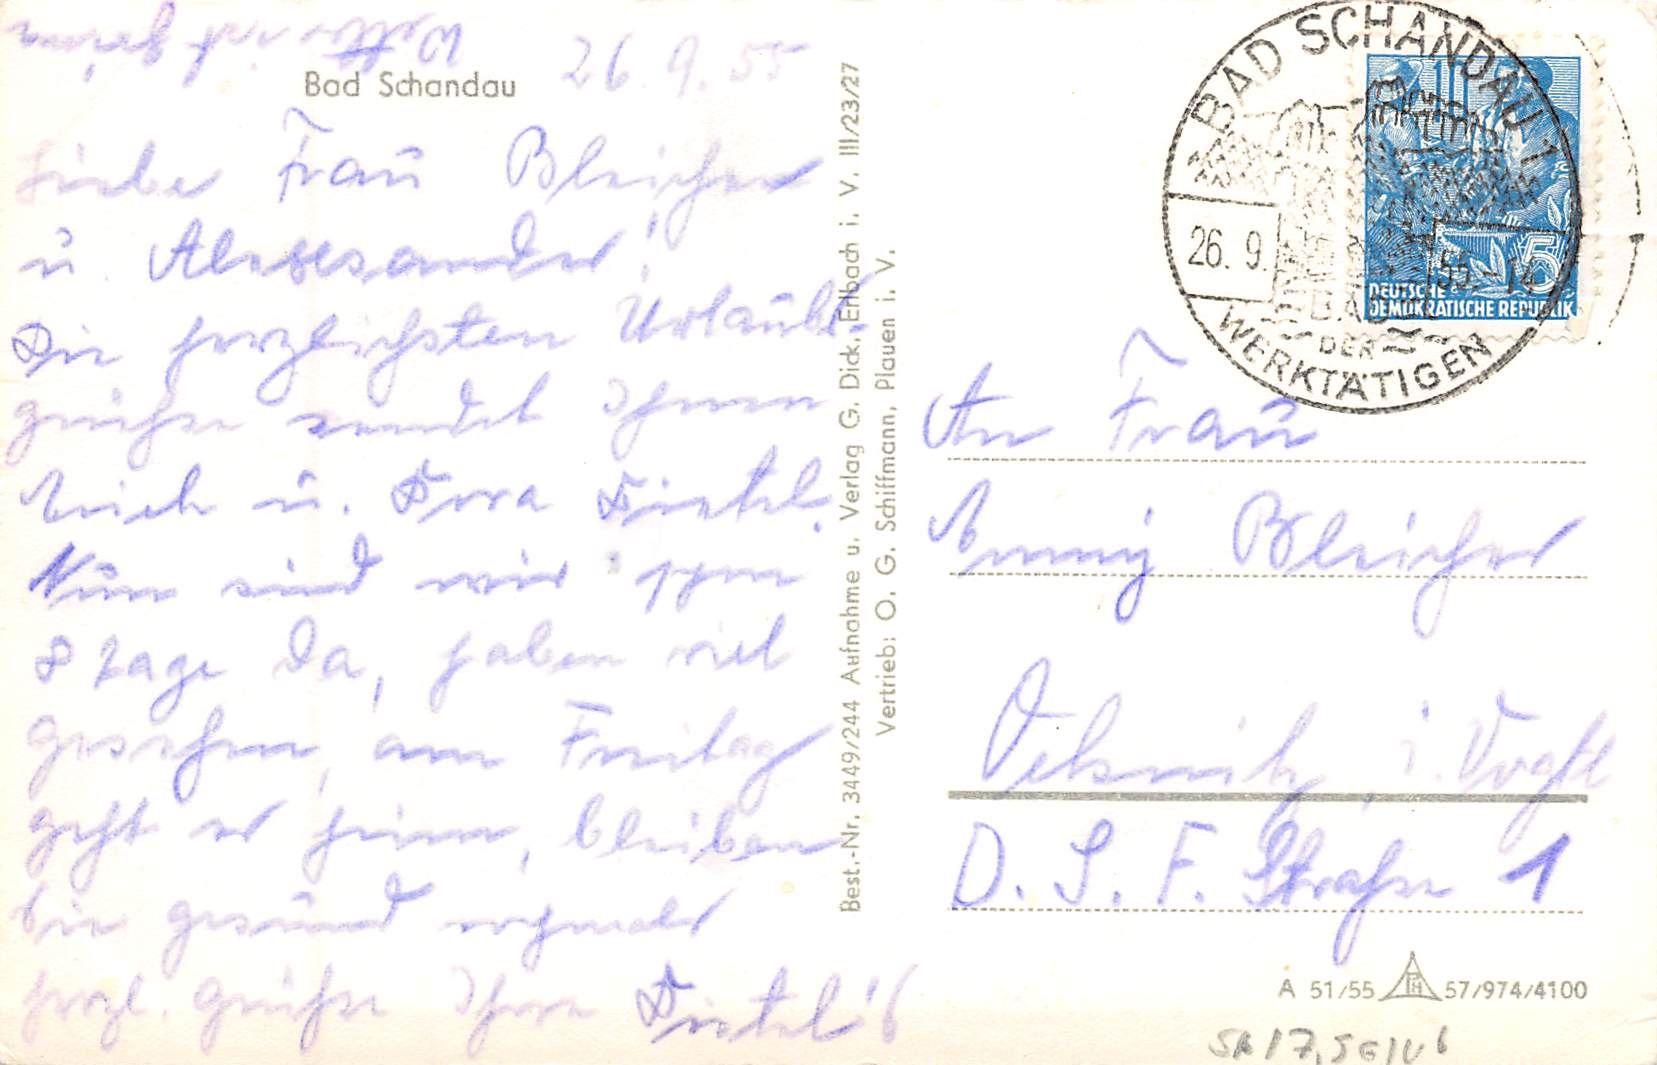 Bad Schandau
26.9.55
Liebe Frau Bleicher
u. Alexsander!
Die herzlichsten Urlaubs-
grüße sendet Ihnen
Erich u. Dora Dietel.
Nun sind wir schon
8 Tage da, haben viel
gesehen, am Freitag
geht es heim, bleiben
Sie gesund nochmals
herzl. Grüße Ihre Dietel's
Wetter ist
Best.-Nr. 3449/244 Aufnahme u. Verlag G. Dick, Erlbach i. V. III/23/27
Vertrieb: O. G. Schiffmann, Plauen i. V.
BAD SCHANDAU 1
26.9.55.-14
BAD
DER
WERKTÄTIGEN
5
DEUTSCHE
DEMOKRATISCHE REPUBLIK
An Frau
Emmy Bleicher
Oelsnitz i. Vogtl
D. S. F. Straße 1
A 51/55 57/974/4100